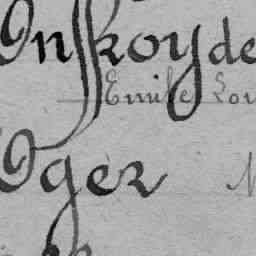 Onskoyde
Emile Lou
Oger